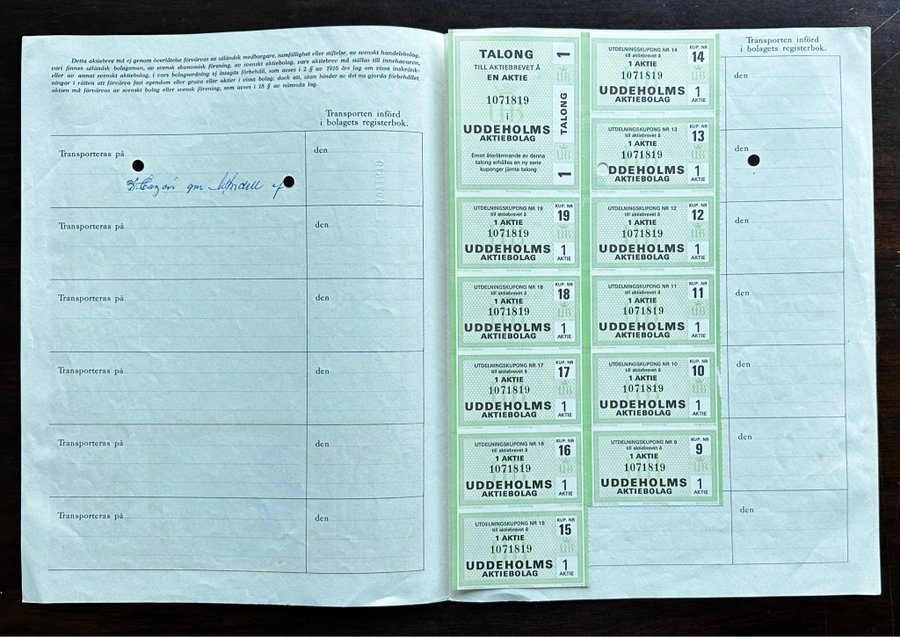 Detta aktiebrev må ej genom överlåtelse förvärvas av utländsk medborgare, samfällighet eller stiftelse, av svenskt handelsbolag,
vari finnes utländsk bolagsman, av svensk ekonomisk förening, av svenskt aktiebolag, vars aktiebrev må ställas till innehavaren,
eller av annat svenskt aktiebolag, i vars bolagsordning ej intagits förbehåll, som avses i 2 § av 1916 års lag om vissa inskränk-
ningar i rätten att förvärva fast egendom eller gruva eller aktier i vissa bolag; dock att, utan hinder av det nu gjorda förbehållet,
aktien må förvärvas av svenskt bolag eller svensk förening, som avses i 18 § av nämnda lag.
Transporten införd
i bolagets registerbok.
Transporteras på
den
Transporteras på
den
Transporteras på
den
Transporteras på
den
Transporteras på
den
Transporteras på
den
TALONG
TILL AKTIEBREVET Å
EN AKTIE
1071819
i
UDDEHOLMS
AKTIEBOLAG
Emot återlämnande av denna
talong erhålles en ny serie
kuponger jämte talong
1
TALONG
1
UTDELNINGSKUPONG NR 19
till aktiebrevet å
1 AKTIE
1071819
UDDEHOLMS
AKTIEBOLAG
KUP. NR
19
1
AKTIE
UTDELNINGSKUPONG NR 18
till aktiebrevet å
1 AKTIE
1071819
UDDEHOLMS
AKTIEBOLAG
KUP. NR
18
1
AKTIE
UTDELNINGSKUPONG NR 17
till aktiebrevet å
1 AKTIE
1071819
UDDEHOLMS
AKTIEBOLAG
KUP. NR
17
1
AKTIE
UTDELNINGSKUPONG NR 16
till aktiebrevet å
1 AKTIE
1071819
UDDEHOLMS
AKTIEBOLAG
KUP. NR
16
1
AKTIE
UTDELNINGSKUPONG NR 15
till aktiebrevet å
1 AKTIE
1071819
UDDEHOLMS
AKTIEBOLAG
KUP. NR
15
1
AKTIE
UTDELNINGSKUPONG NR 14
till aktiebrevet å
1 AKTIE
1071819
UDDEHOLMS
AKTIEBOLAG
KUP. NR
14
1
AKTIE
UTDELNINGSKUPONG NR 13
till aktiebrevet å
1 AKTIE
1071819
DDEHOLMS
AKTIEBOLAG
KUP. NR
13
1
AKTIE
UTDELNINGSKUPONG NR 12
till aktiebrevet å
1 AKTIE
1071819
UDDEHOLMS
AKTIEBOLAG
KUP. NR
12
1
AKTIE
UTDELNINGSKUPONG NR 11
till aktiebrevet å
1 AKTIE
1071819
UDDEHOLMS
AKTIEBOLAG
KUP. NR
11
1
AKTIE
UTDELNINGSKUPONG NR 10
till aktiebrevet å
1 AKTIE
1071819
UDDEHOLMS
AKTIEBOLAG
KUP. NR
10
1
AKTIE
UTDELNINGSKUPONG NR 9
till aktiebrevet å
1 AKTIE
1071819
UDDEHOLMS
AKTIEBOLAG
KUP. NR
9
1
AKTIE
Transporten införd
i bolagets registerbok.
den
den
den
den
den
den
den